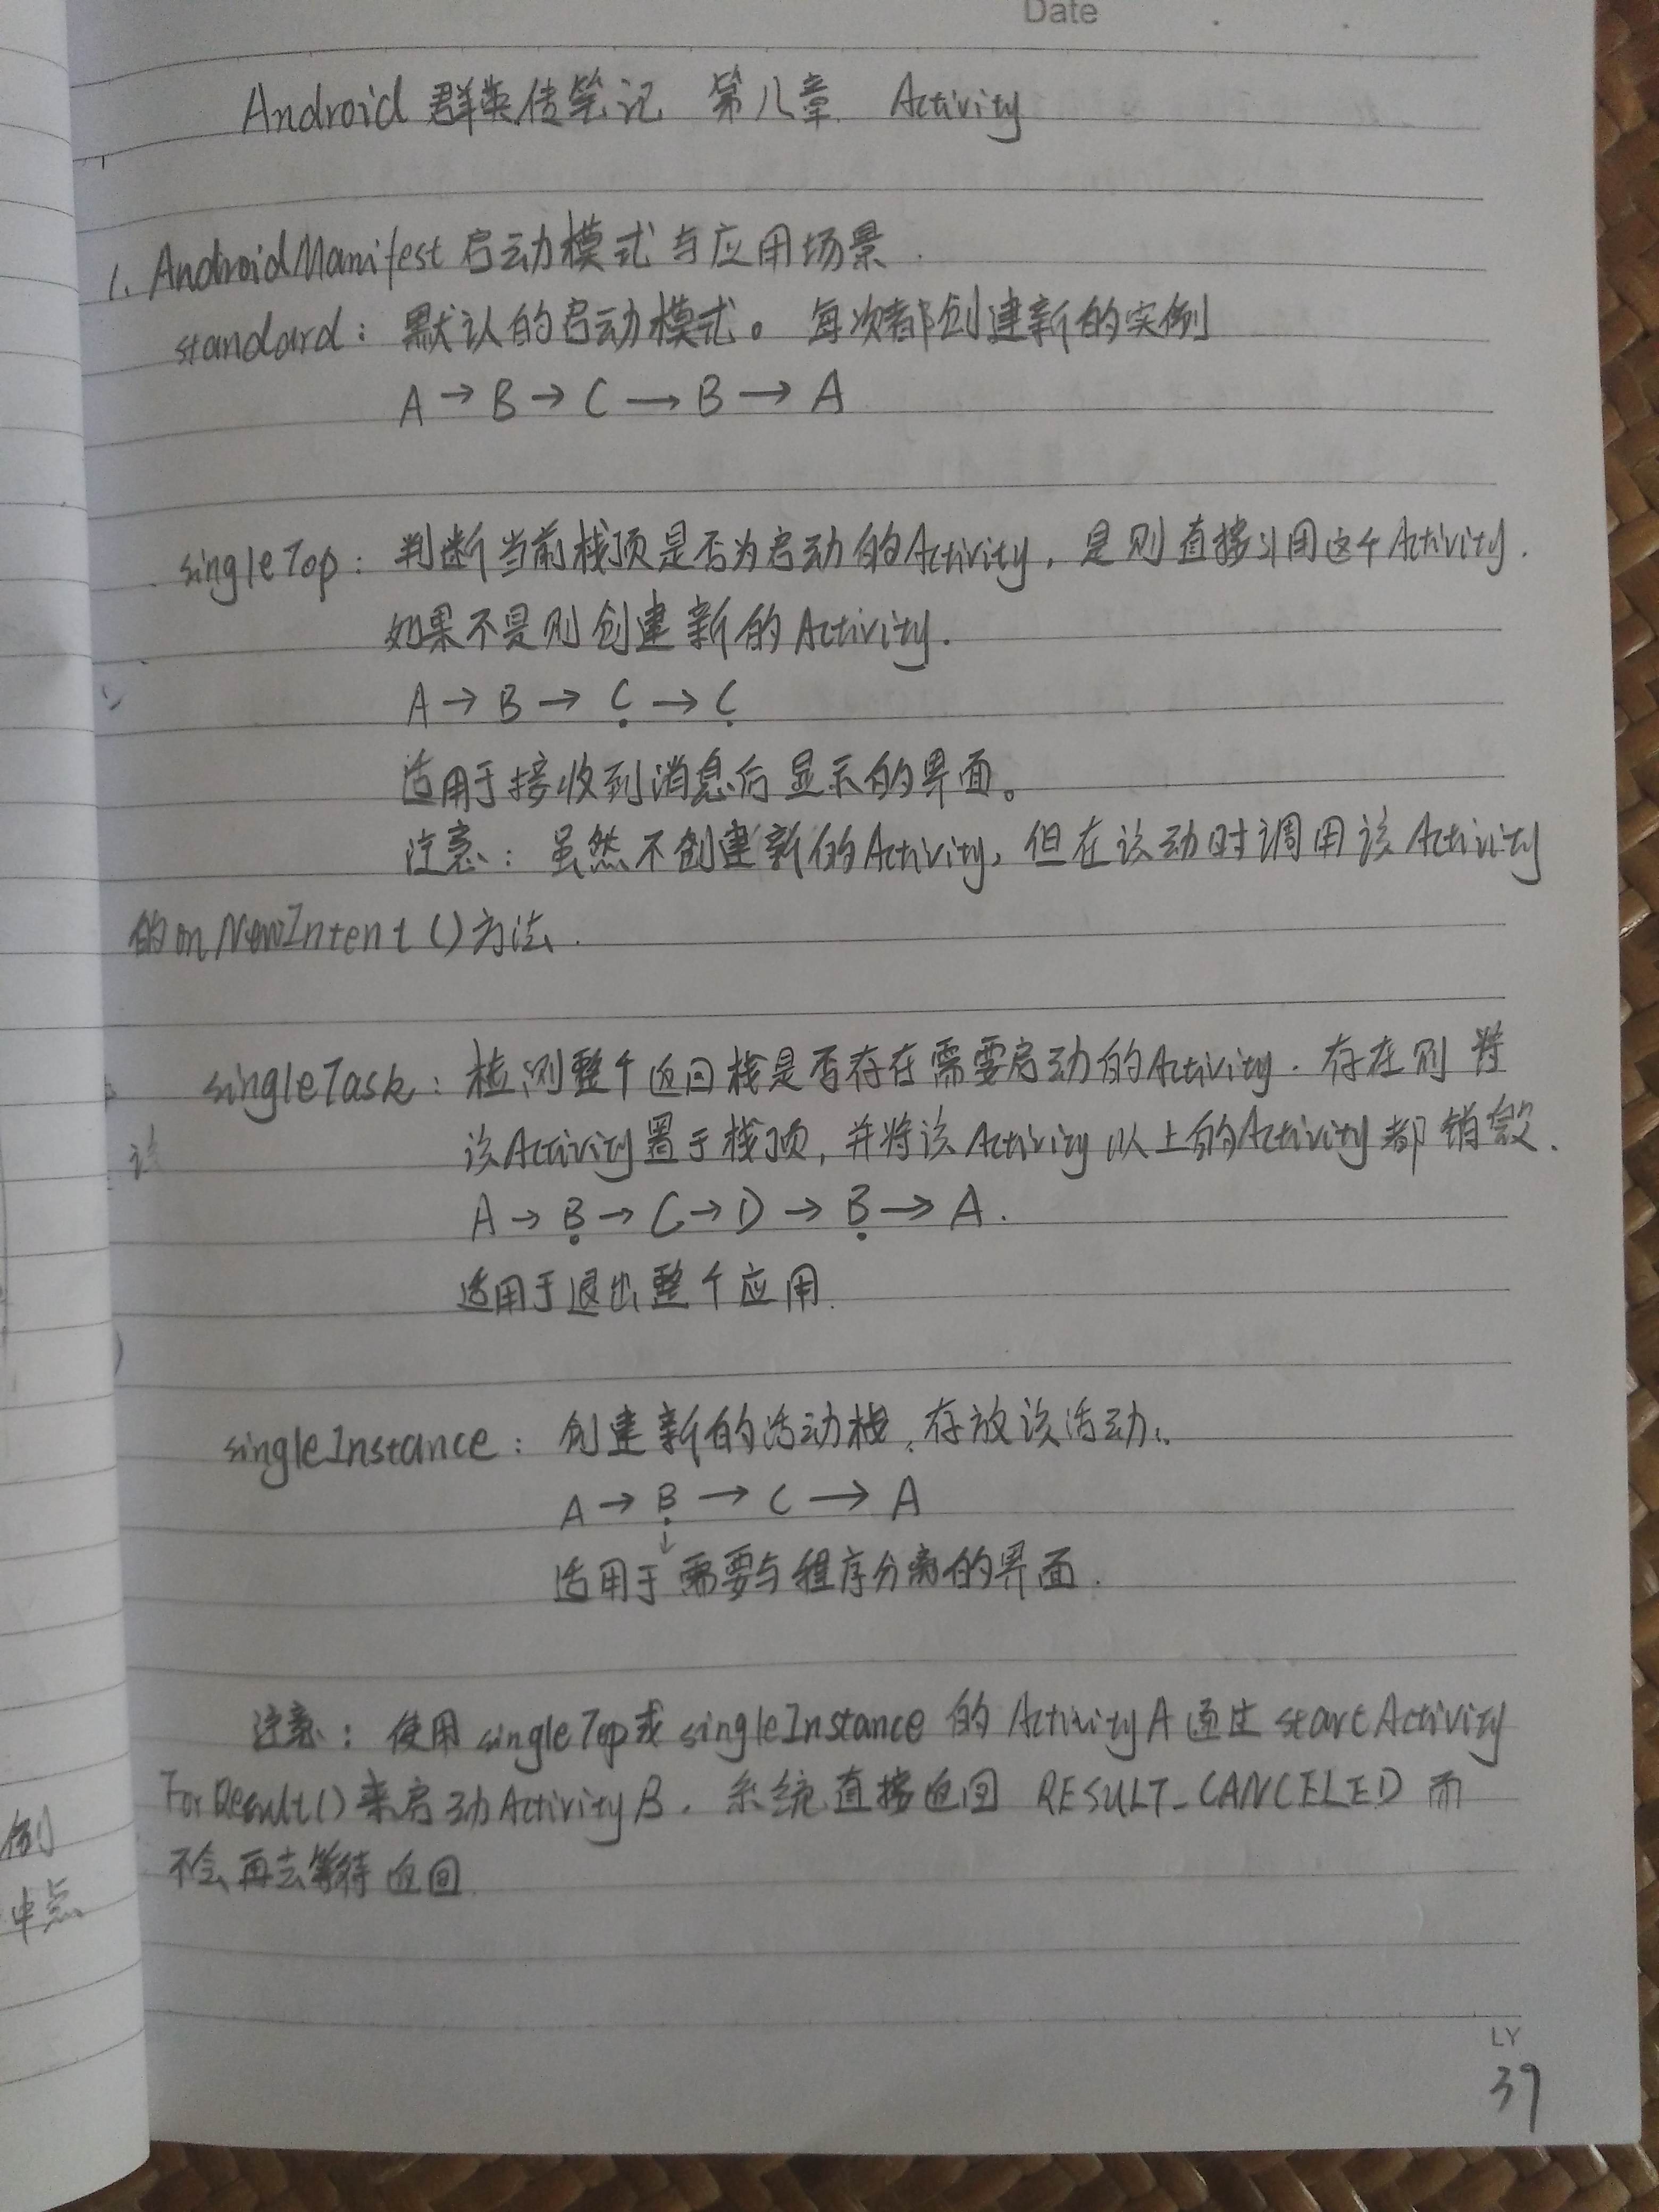 Date
Android 群英传笔记 第八章 Activity
1. AndroidManifest 启动模式与应用场景.
standard: 默认的启动模式。每次都创建新的实例
A → B → C → B → A
singleTop: 判断当前栈顶是否为启动的Activity, 是则直接引用这个Activity.
如果不是则创建新的Activity.
A → B → C → C
适用于接收到消息后显示的界面。
注意: 虽然不创建新的Activity, 但在该动时调用该Activity
的onNewIntent()方法.
singleTask: 检测整个返回栈是否存在需要启动的Activity. 存在则将
该Activity置于栈顶, 并将该Activity以上的Activity都销毁.
A → B → C → D → B → A.
适用于退出整个应用.
singleInstance: 创建新的活动栈, 存放该活动.
A → B → C → A
↓
适用于需要与程序分离的界面.
注意: 使用singleTop或singleInstance的ActivityA通过startActivity
ForResult()来启动ActivityB. 系统直接返回 RESULT_CANCELED 而
不会再去等待返回
例
冲点
LY
39